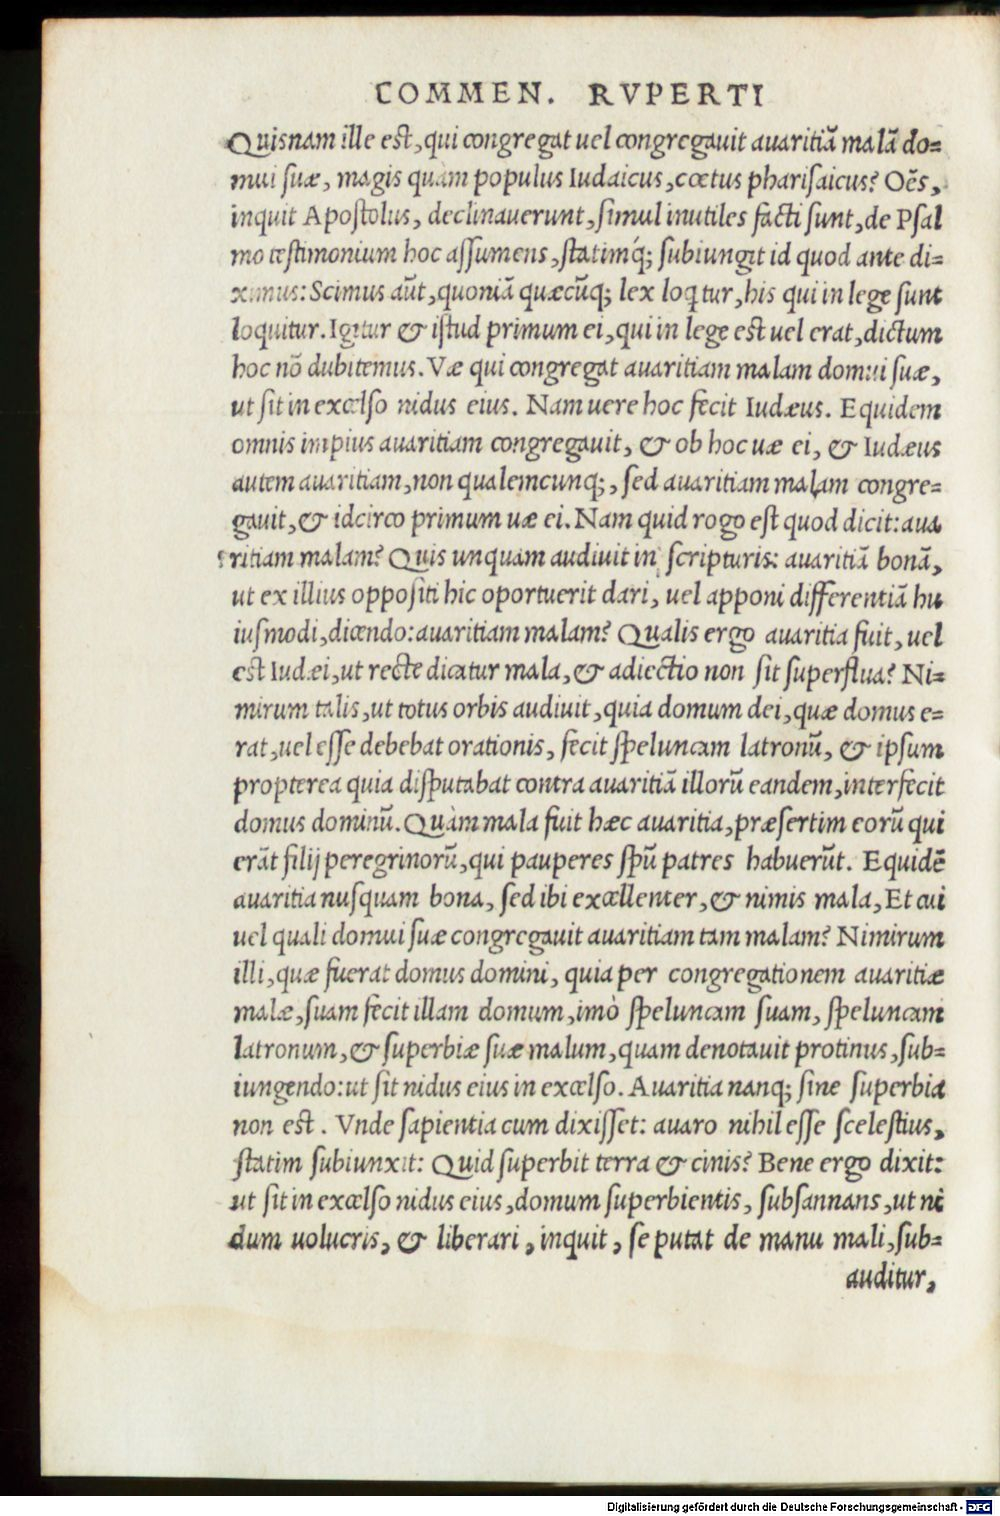 COMMEN. RVPERTI
Quisnam ille est, qui congregat uel congregauit auaritiã malã do=
mui suæ, magis quàm populus Iudaicus, cœtus pharisaicus? Oẽs,
inquit Apostolus, declinauerunt, simul inutiles facti sunt, de Psal
mo testimonium hoc assumens, statimq́; subiungit id quod ante di=
ximus: Scimus aũt, quoniã quæcũq; lex loqtur, his qui in lege sunt
loquitur. Igitur & istud primum ei, qui in lege est uel erat, dictum
hoc nõ dubitemus. Væ qui congregat auaritiam malam domui suæ,
ut sit in excelso nidus eius. Nam uere hoc fecit Iudæus. Equidem
omnis impius auaritiam congregauit, & ob hoc uæ ei, & Iudæus
autem auaritiam, non qualemcunq;, sed auaritiam malam congre=
gauit, & idcirco primum uæ ei. Nam quid rogo est quod dicit: aua
ritiam malam? Quis unquam audiuit in scripturis: auaritiã bonã,
ut ex illius oppositi hic oportuerit dari, uel apponi differentiã hu
iusmodi, dicendo: auaritiam malam? Qualis ergo auaritia fuit, uel
est Iudæi, ut recte dicatur mala, & adiectio non sit superflua? Ni=
mirum talis, ut totus orbis audiuit, quia domum dei, quæ domus e=
rat, uel esse debebat orationis, fecit speluncam latronũ, & ipsum
propterea quia disputabat contra auaritiã illorũ eandem, interfecit
domus dominũ. Quàm mala fuit hæc auaritia, præsertim eorũ qui
erãt filij peregrinorũ, qui pauperes spũ patres habuerũt. Equidẽ
auaritia nusquam bona, sed ibi excellenter, & nimis mala, Et cui
uel quali domui suæ congregauit auaritiam tam malam? Nimirum
illi, quæ fuerat domus domini, quia per congregationem auaritiæ
malæ, suam fecit illam domum, imò speluncam suam, speluncam
latronum, & superbiæ suæ malum, quam denotauit protinus, sub=
iungendo: ut sit nidus eius in excelso. Auaritia nanq; sine superbia
non est. Vnde sapientia cum dixisset: auaro nihil esse scelestius,
statim subiunxit: Quid superbit terra & cinis? Bene ergo dixit:
ut sit in excelso nidus eius, domum superbientis, subsannans, ut ni
dum uolucris, & liberari, inquit, se putat de manu mali, sub=
auditur,
Digitalisierung gefördert durch die Deutsche Forschungsgemeinschaft - DFG